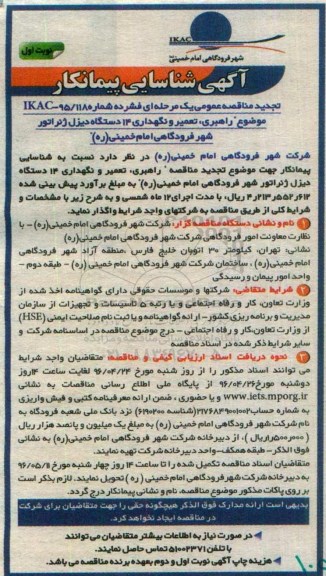 IKAC
شهر فرودگاهی امام خمینی(ره)
نوبت اول
آگهی شناسایی پیمانکار
تجدید مناقصه عمومی یک مرحله ای فشرده شماره IKAC-۹۵/۱۱۸۰
موضوع "راهبری، تعمیر و نگهداری ۱۴ دستگاه دیزل ژنراتور
شهر فرودگاهی امام خمینی(ره)"
شرکت شهر فرودگاهی امام خمینی(ره) در نظر دارد نسبت به شناسایی
پیمانکار جهت موضوع تجدید مناقصه " راهبری، تعمیر و نگهداری ۱۴ دستگاه
دیزل ژنراتور شهر فرودگاهی امام خمینی(ره)" به مبلغ برآورد پیش بینی شده
ریال، با مدت اجرای ۱۲ ماه شمسی و به شرح زیر با مشخصات و
شرایط کلی از طریق مناقصه به شرکتهای واجد شرایط واگذار نماید.
۱ نام و نشانی دستگاه مناقصه گزار: شرکت شهر فرودگاهی امام خمینی(ره) – با
نظارت معاونت امور فرودگاهی شرکت شهر فرودگاهی امام خمینی(ره)
نشانی: تهران، کیلومتر ۳۰ اتوبان خلیج فارس -منطقه آزاد شهر فرودگاهی
امام خمینی(ره) ، ساختمان شرکت شهر فرودگاهی امام خمینی(ره) - طبقه دوم -
واحد امور پیمان و رسیدگی
۲ شرایط متقاضی: شرکتها و موسسات حقوقی دارای گواهینامه اخذ شده از
وزارت تعاون، کار و رفاه اجتماعی و یا رتبه ۵ تاسیسات و تجهیزات از سازمان
مدیریت و برنامه ریزی کشور- ارائه گواهینامه و یا ثبت نام صلاحیت ایمنی (HSE)
از وزارت تعاون، کار و رفاه اجتماعی - درج موضوع مناقصه در اساسنامه شرکت و
سایر شرایط ذکر شده در اسناد مناقصه
۳ نحوه دریافت اسناد ارزیابی کیفی و مناقصه: متقاضیان واجد شرایط
می توانند اسناد مذکور را از روز شنبه مورخ ۹۶/۰۴/۲۴ لغایت ساعت ۱۴روز
دوشنبه مورخ ۹۶/۰۴/۲۶ از پایگاه ملی اطلاع رسانی مناقصات به نشانی
www.iets.mporg.ir و یا حضوری ، ضمن ارائه معرفینامه کتبی و فیش واریزی
به شماره حساب ۲۱۷۶۸۴۹۰۰۱۰۰۲(شناسه ۶۲۹۰۲۰۰) نزد بانک ملی شعبه فرودگاه به
نام شرکت شهر فرودگاهی امام خمینی (ره) به مبلغ یک میلیون و پانصد هزار ریال
( ریال )، از دبیرخانه شرکت شهر فرودگاهی امام خمینی(ره) به نشانی
فوق الذکر- طبقه همکف- واحد دبیرخانه شرکت تهیه نمایند.
متقاضیان اسناد مناقصه تکمیل شده را تا ساعت ۱۴ روز چهار شنبه مورخ ۹۶/۰۵/۱۱
به دبیرخانه شرکت شهر فرودگاهی امام خمینی ( ره ) تحویل نمایند. لازم بذکر است
بر روی پاکات مذکور موضوع مناقصه، نام و نشانی پیمانکار درج گردد.
بدیهی است ارائه مدارک فوق الذکر هیچگونه حقی را جهت متقاضیان برای شرکت
در مناقصه ایجاد نخواهد کرد.
در صورت نیاز به اطلاعات بیشتر متقاضیان می توانند
با تلفن ۵۱۰۰۲۳۷۱ تماس حاصل نمایند.
هزینه چاپ آگهی نوبت اول و دوم بعهده برنده مناقصه می باشد.